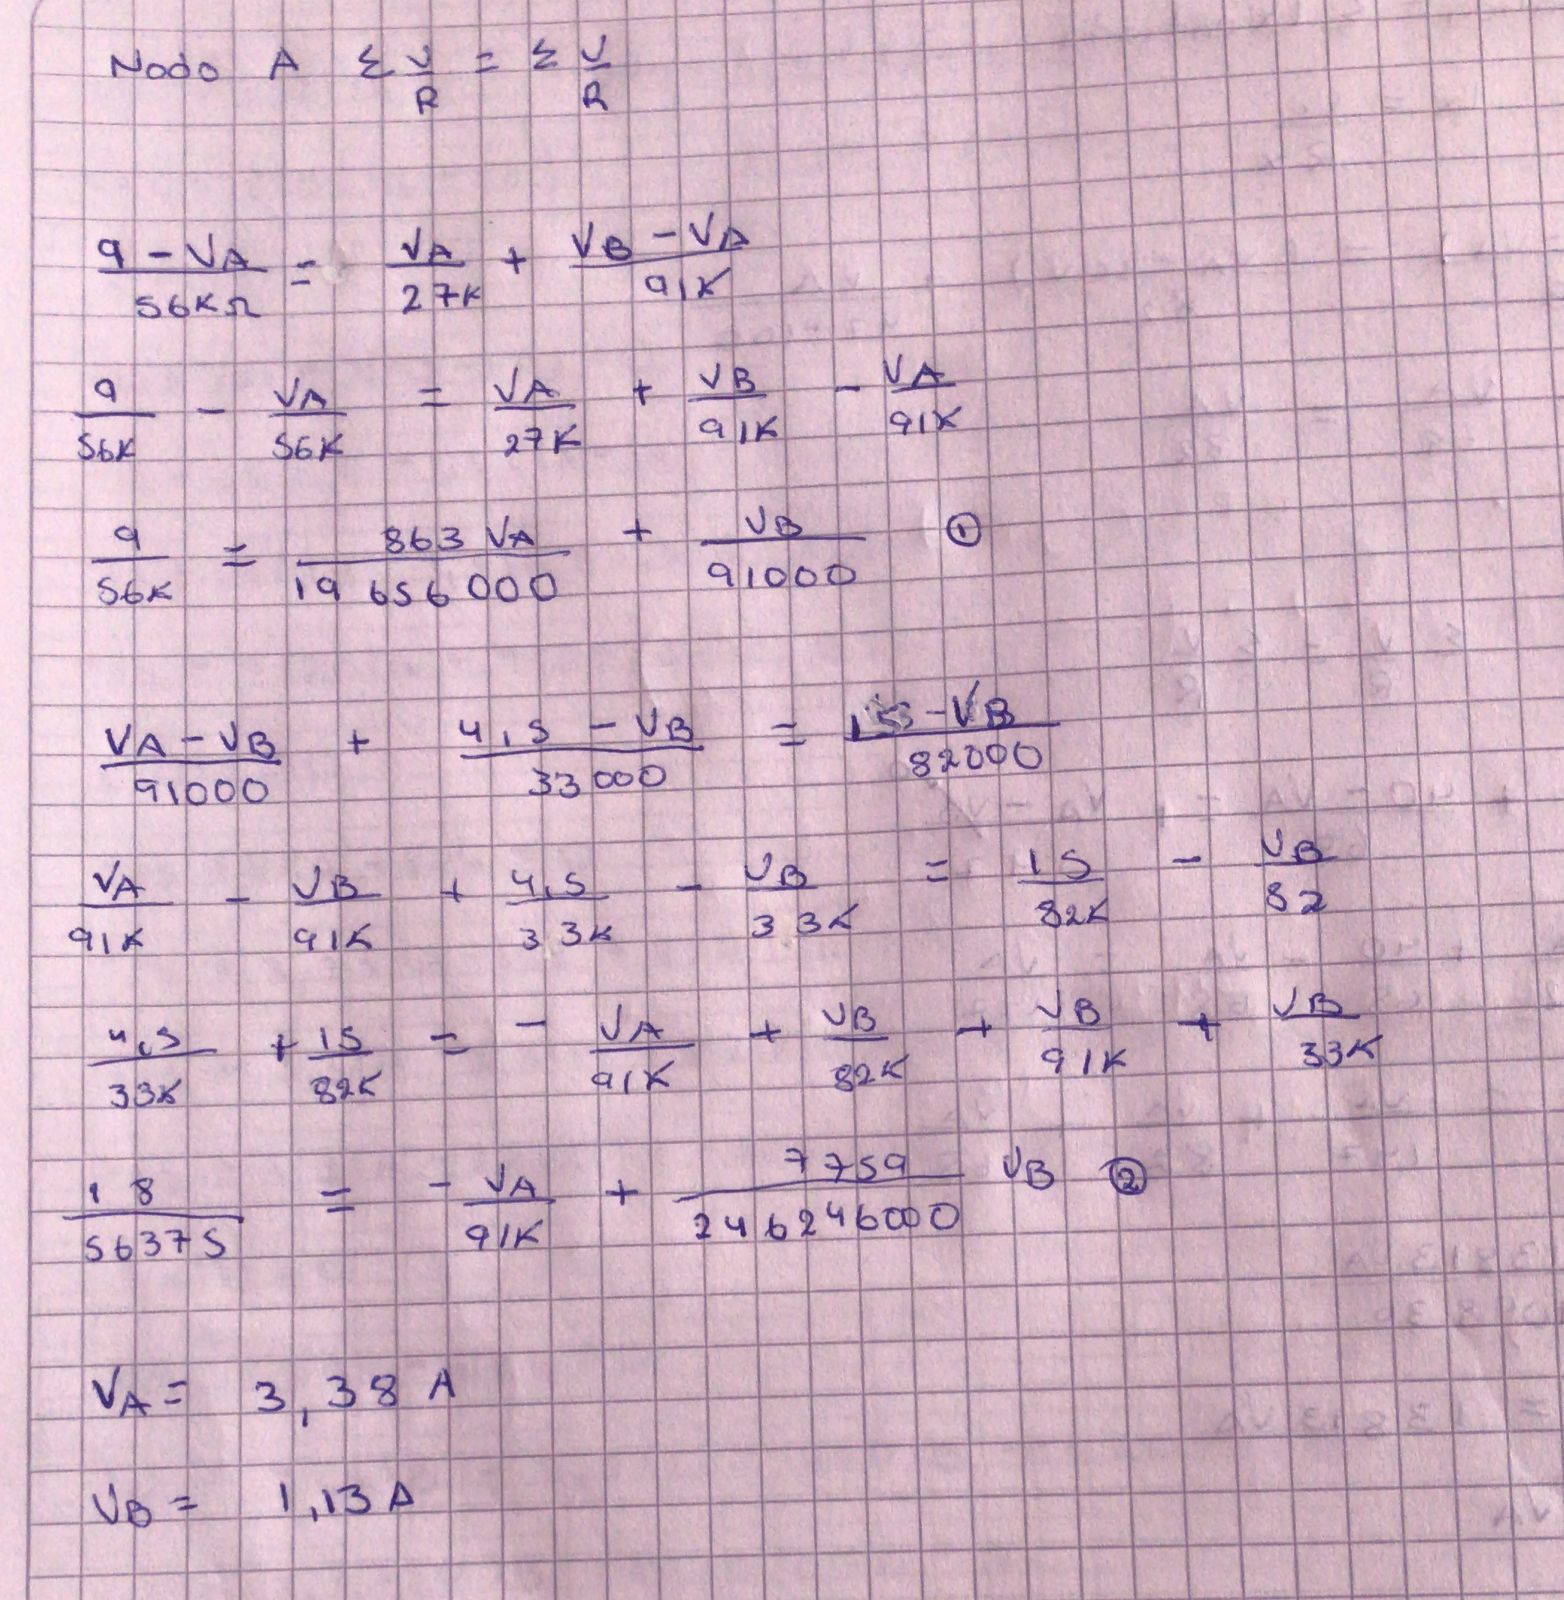 Nodo A Σ V/R = Σ V/R
9 - VA / 56KΩ = VA / 27K + VB - VA / 91K
9 / 56K - VA / 56K = VA / 27K + VB / 91K - VA / 91K
9 / 56K = 863 VA / 19 656 000 + VB / 91000 ①
VA - VB / 91000 + 4,5 - VB / 33000 = - VB / 82000
VA / 91K - VB / 91K + 4,5 / 33K - VB / 33K = 15 / 82K - VB / 82
4,5 / 33K + 15 / 82K = - VA / 91K + VB / 82K + VB / 91K + VB / 33K
18 / 56375 = - VA / 91K + 7759 / 246246000 VB ②
VA = 3,38 A
VB = 1,13 A